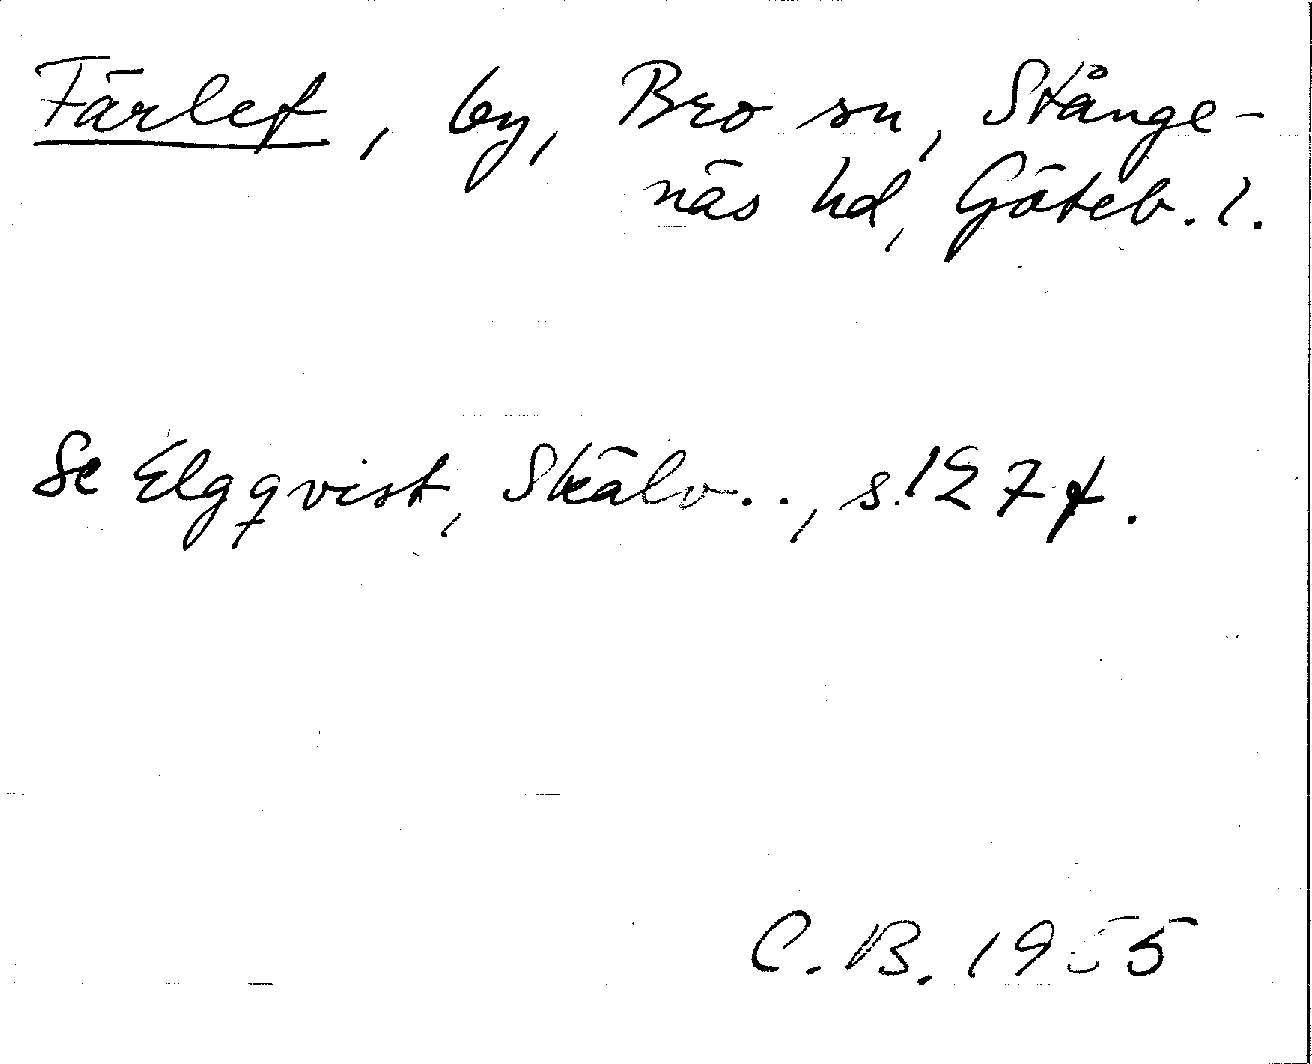 Färlef, by, Bro sn, Stånge-
näs hd, Göteb. l.
Se Elgqvist, Skälv.., s. 127 f.
C. B. 1955